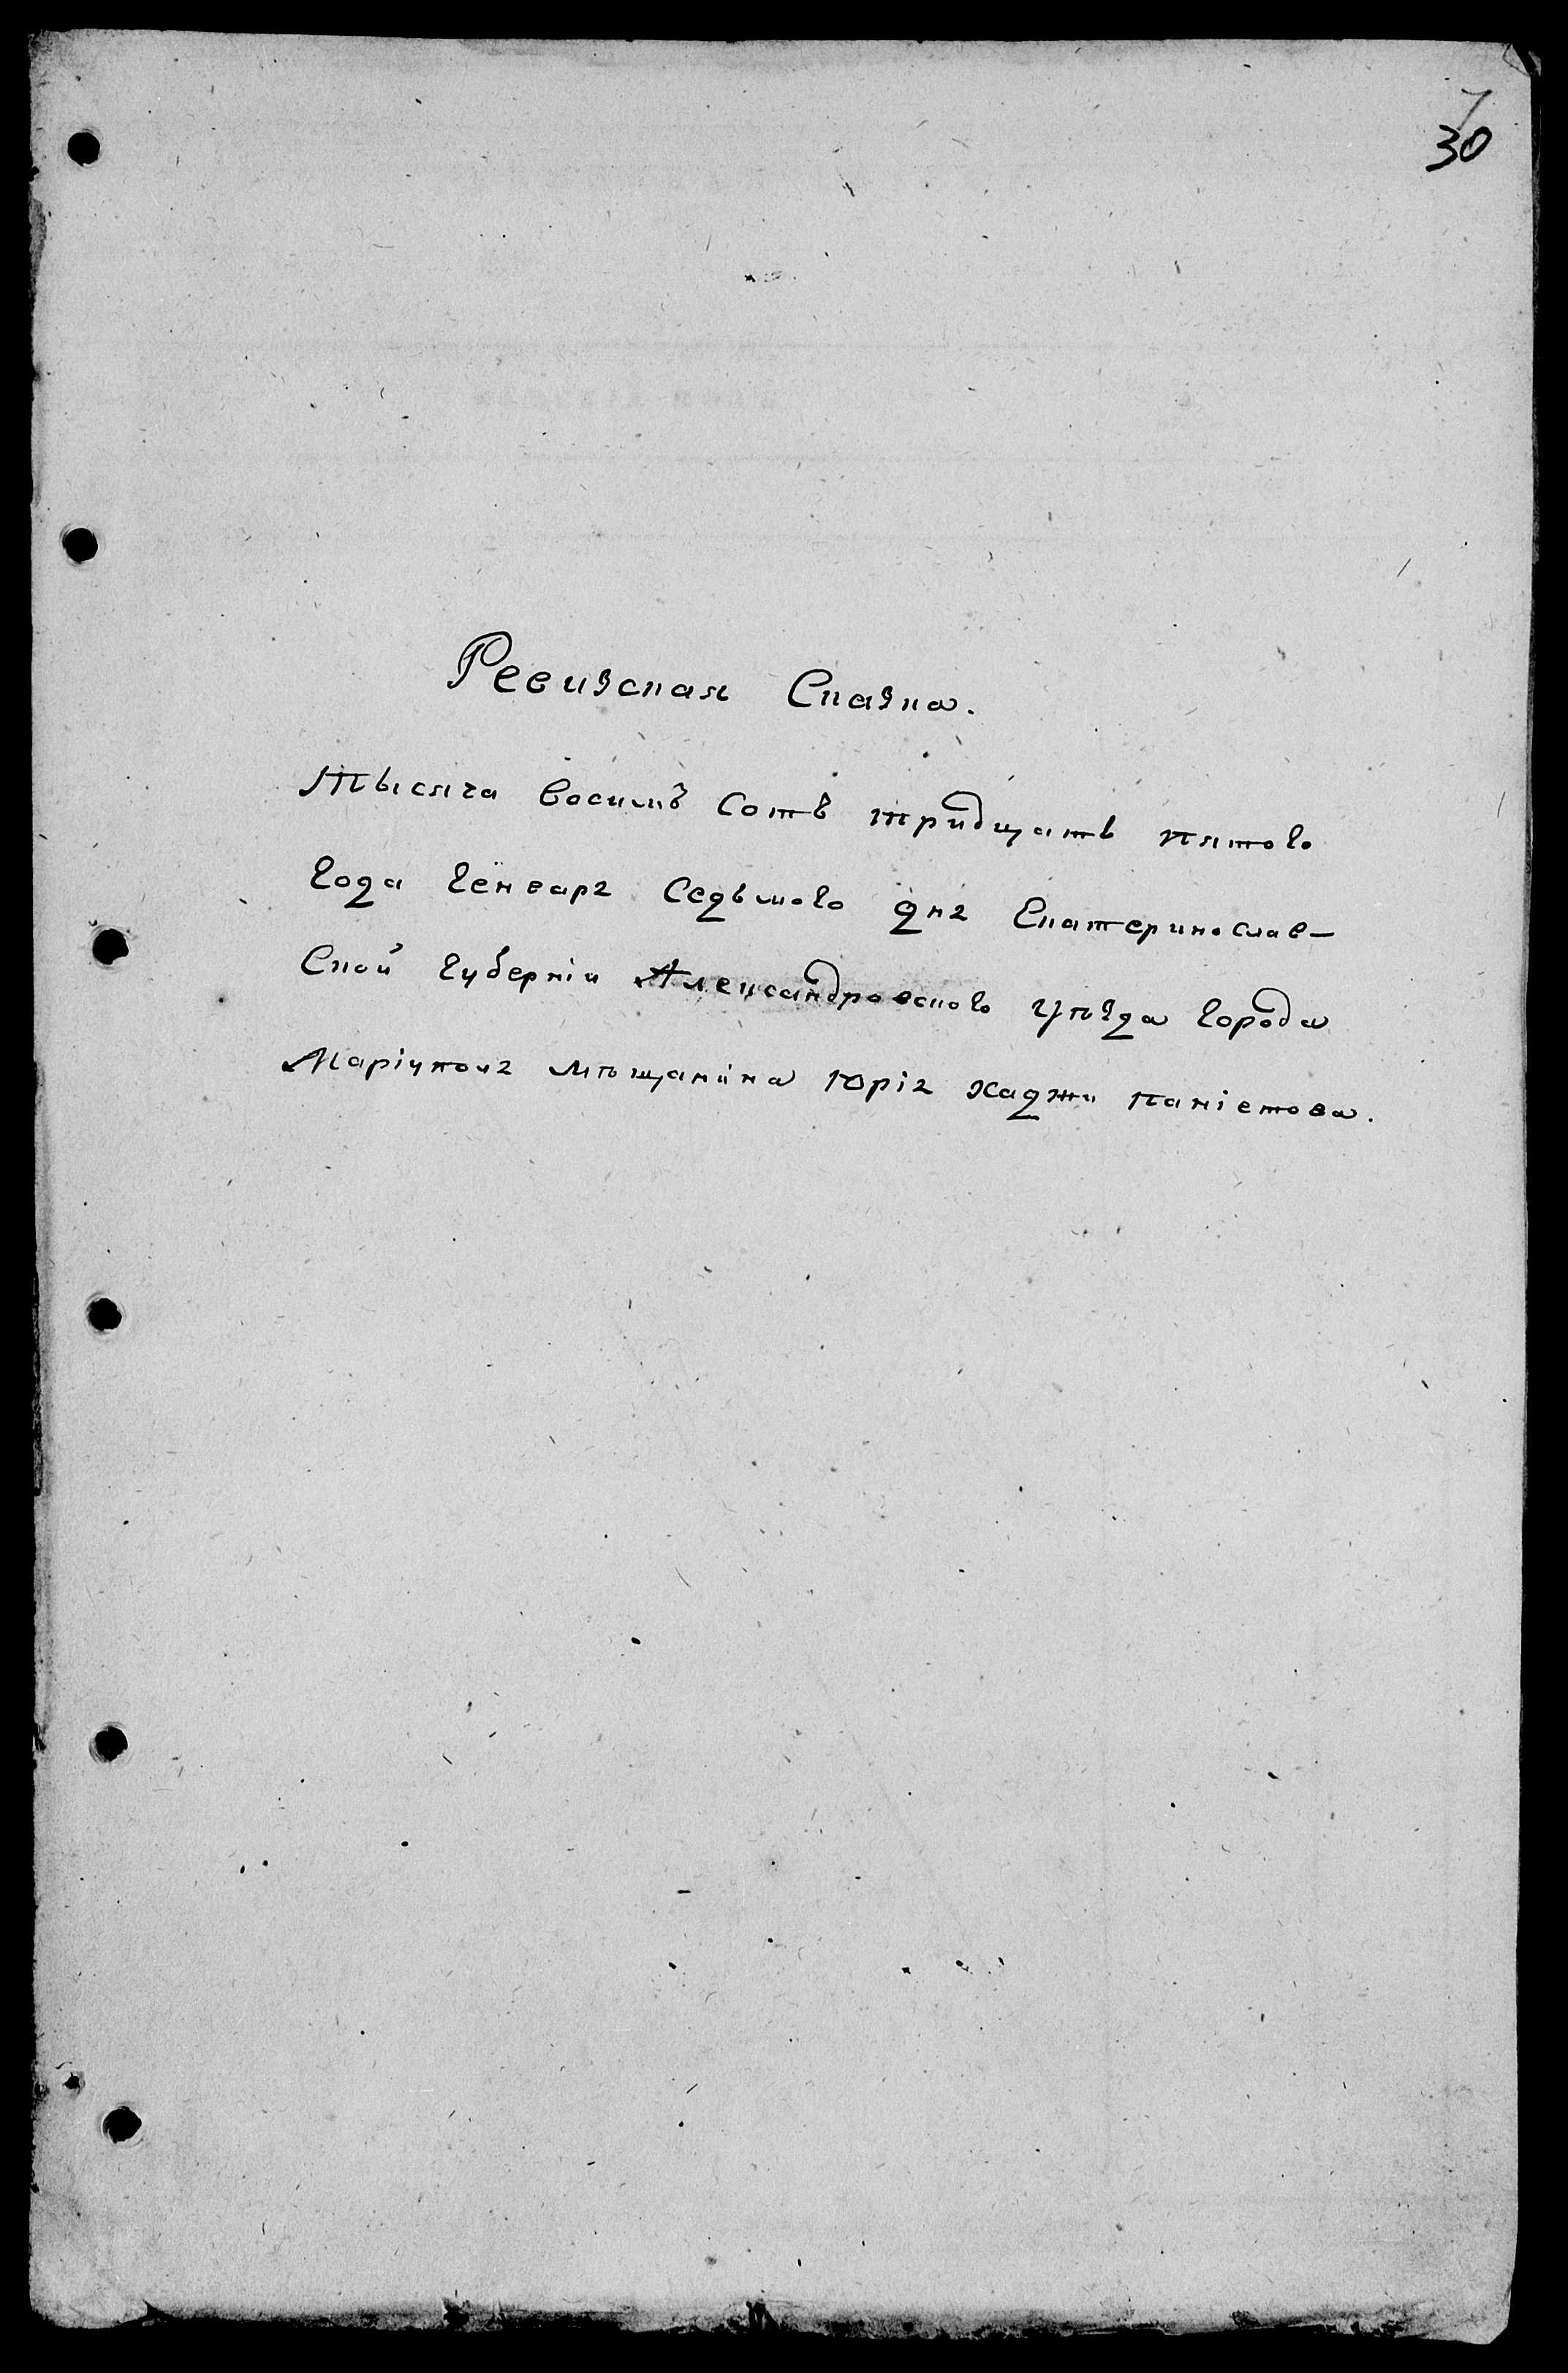 7
30
Ревизская Сказка.
Тысяча восимъ сотъ тридцать пятого
года генваря седьмого дня Екатеринослав-
ской губерніи Александровского уѣзда города
Маріуполя мѣщанина Юрія хаджи паніетова.